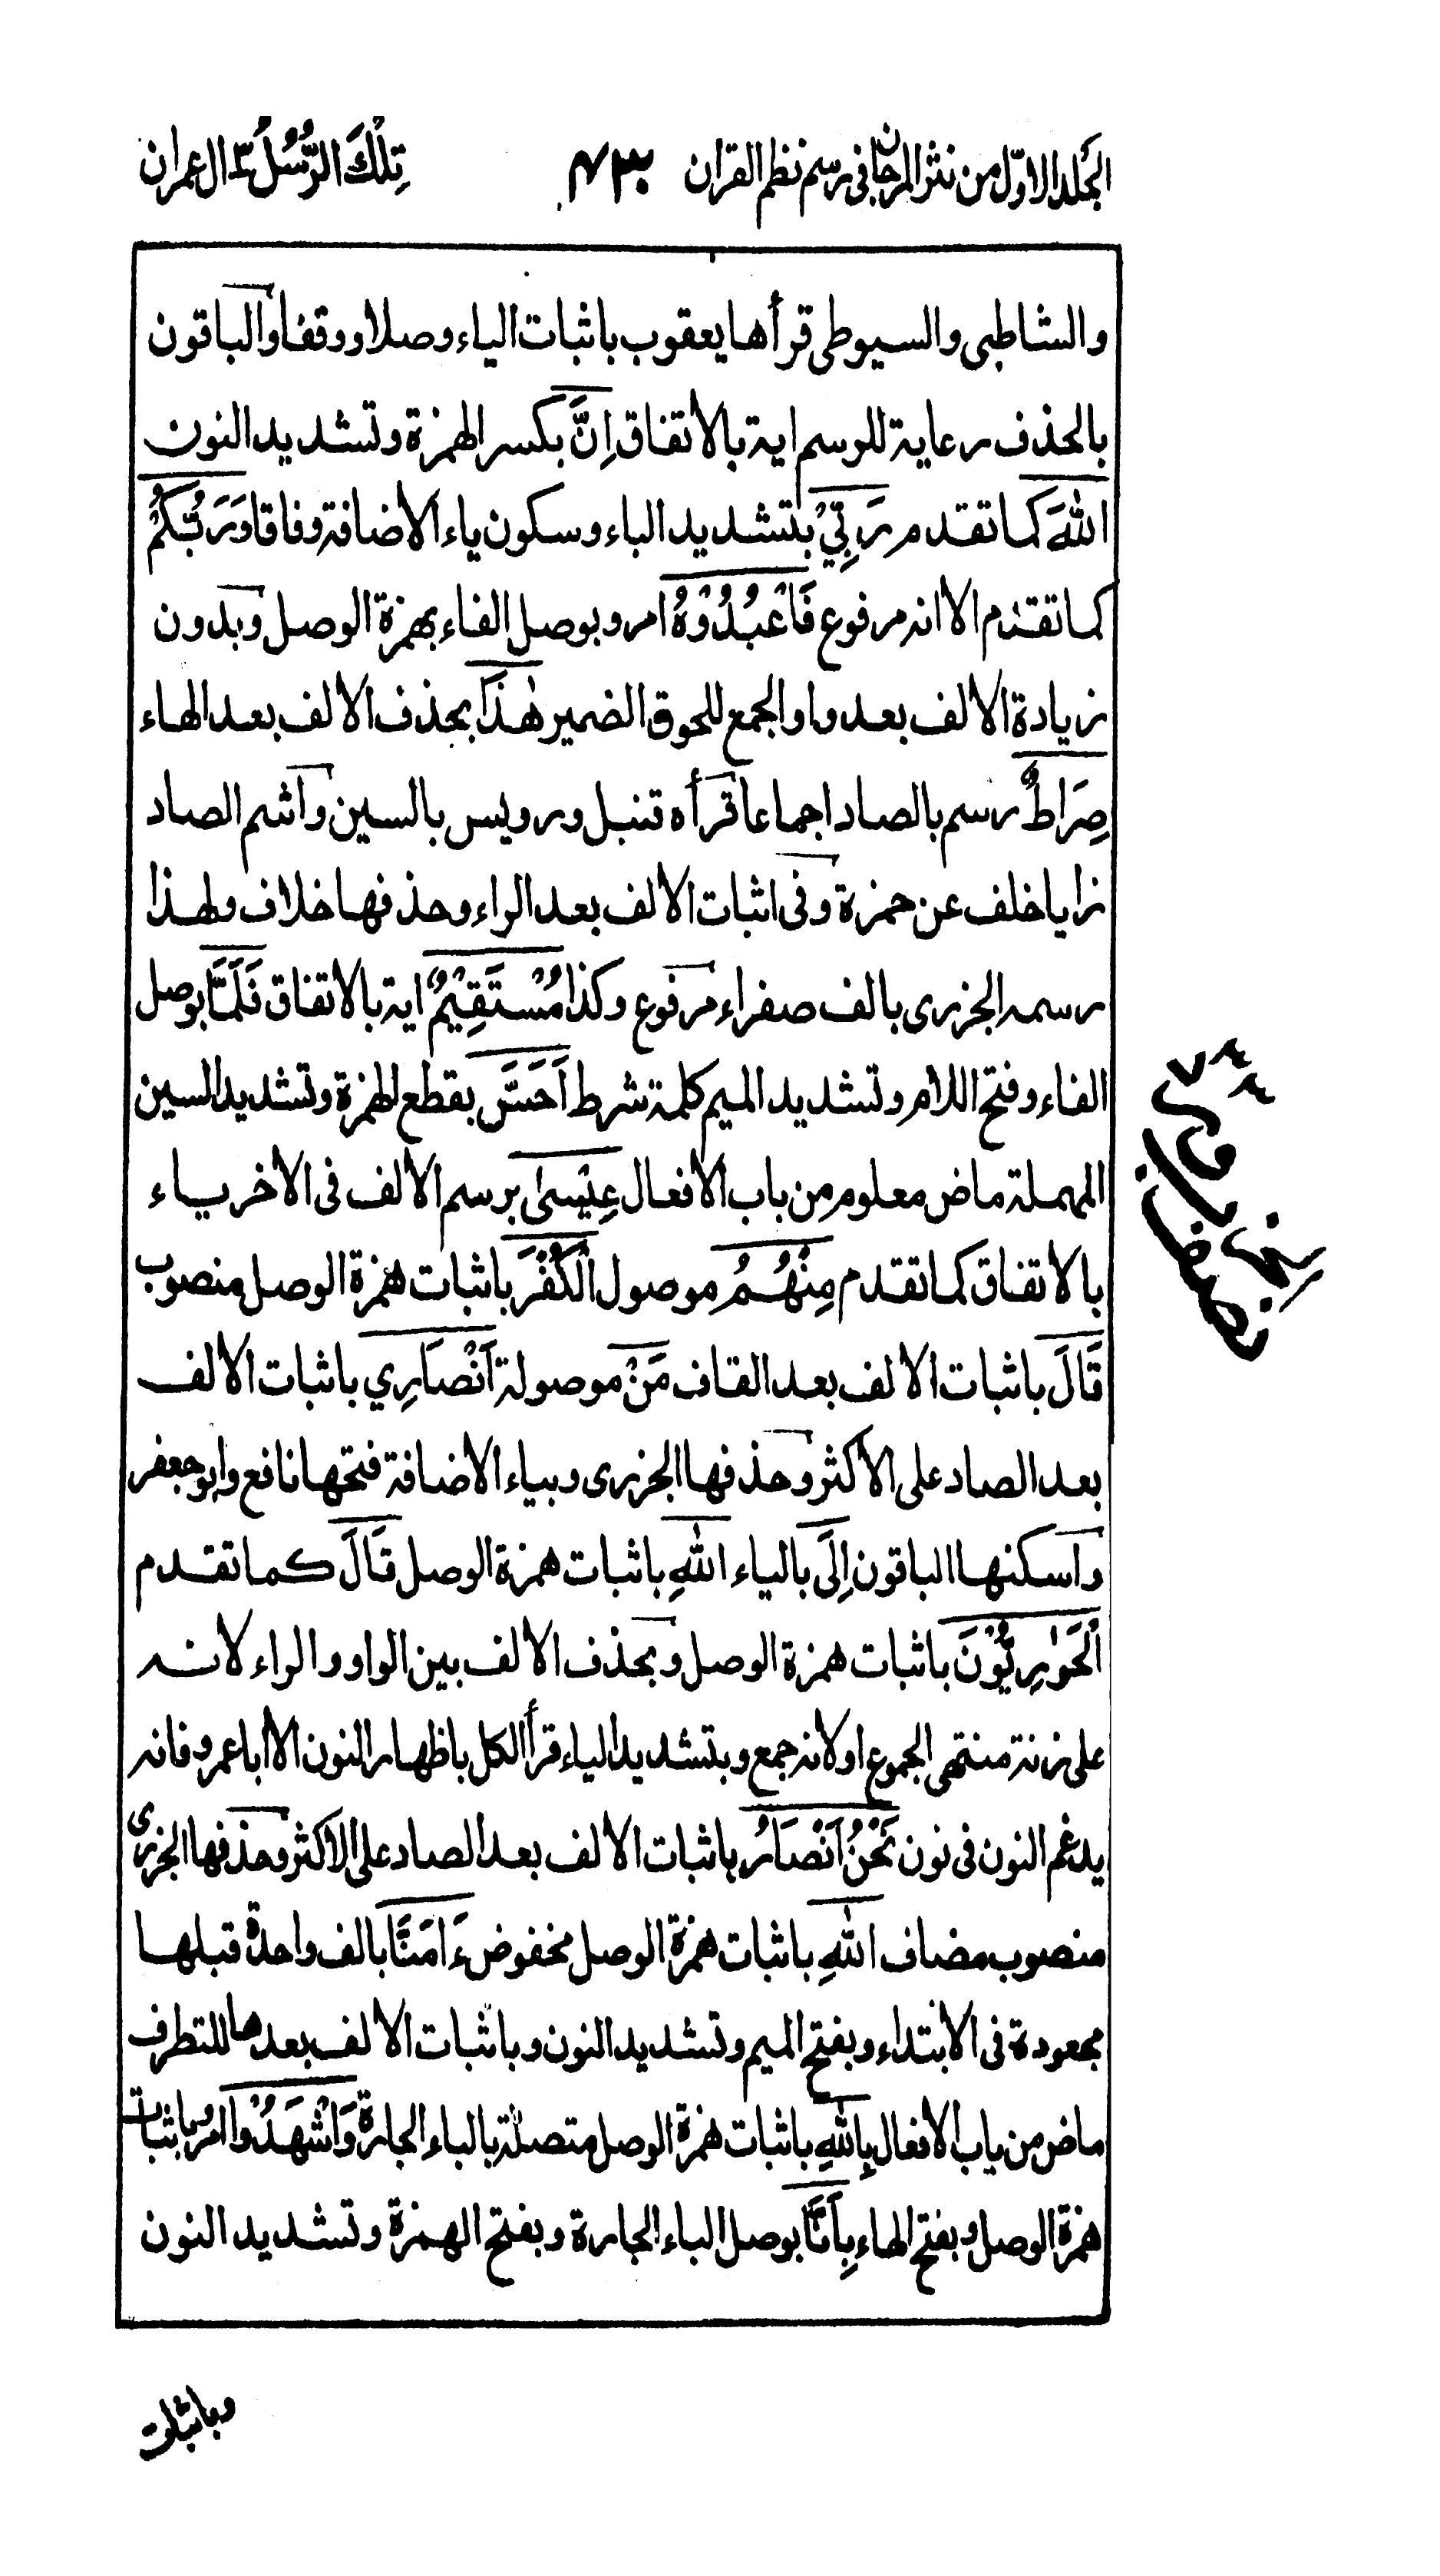 الجلد الاوّل من نثر المرجان فى رسم نظم القران ٤٣٠ تِلْكَ الرُّسُلُ ٣ ال عمران
والشاطبى والسيوطى قرأها يعقوب باثبات الياء وصلا ووقفا والباقون
بالحذف رعاية للرسم اية بالاتفاق اِنَّ بكسر الهمزة وتشديد النون
اللّٰهَ كما تقدم رَبِّيْ بتشديد الباء وسكون ياء الاضافة وفاقا وَرَبُّكُمْ
كما تقدم الا انه مرفوع فَاعْبُدُوْهُ امر وبوصل الفاء بهمزة الوصل وبدون
زيادة الالف بعد واو الجمع للحوق الضمير هٰذَا بحذف الالف بعد الهاء
صِرَاطٌ رسم بالصاد اجماعا قرأه قنبل ورويس بالسين واشم الصاد
زايا خلف عن حمزة وفى اثبات الالف بعد الراء وحذفها خلاف ولهذا
رسمه الجزرى بالف صفراء مرفوع وكذا مُسْتَقِيْمٌ اية بالاتفاق فَلَمَّا بوصل
الفاء وفتح اللام وتشديد الميم كلمة شرط اَحَسَّ بقطع الهمزة وتشديد السين
المهملة ماض معلوم من باب الافعال عِيْسٰى برسم الالف فى الاخر ياء
بالاتفاق كما تقدم مِنْهُمُ موصول الْكُفْرَ باثبات همزة الوصل منصوب
قَالَ باثبات الالف بعد القاف مَنْ موصولة اَنْصَارِي باثبات الالف
بعد الصاد على الاكثر وحذفها الجزرى وبياء الاضافة فتحها نافع وابو جعفر
واسكنها الباقون اِلَى بالياء اللّٰهِ باثبات همزة الوصل قَالَ كما تقدم
الْحَوٰرِيُّوْنَ باثبات همزة الوصل وبحذف الالف بين الواو والراء لانه
على زنة منتهى الجموع او لانه جمع وبتشديد الياء قرأ الكل باظهار النون الا ابا عمرو فانه
يدغم النون فى نون نَحْنُ اَنْصَارُ باثبات الالف بعد الصاد على الاكثر وحذفها الجزرى
منصوب مضاف اللّٰهِ باثبات همزة الوصل مخفوض ءَامَنَّا بالف واحدة قبلها
مجعودة فى الابتداء وبفتح الميم وتشديد النون وباثبات الالف بعدها للتطرف
ماض من باب الافعال بِاللّٰهِ باثبات همزة الوصل متصلة بالباء الجارة وَاشْهَدُوْا امر باثبات
همزة الوصل وبفتح الهاء بِاَنَّا بوصل الباء الجارة وبفتح الهمزة وتشديد النون
وباثبات